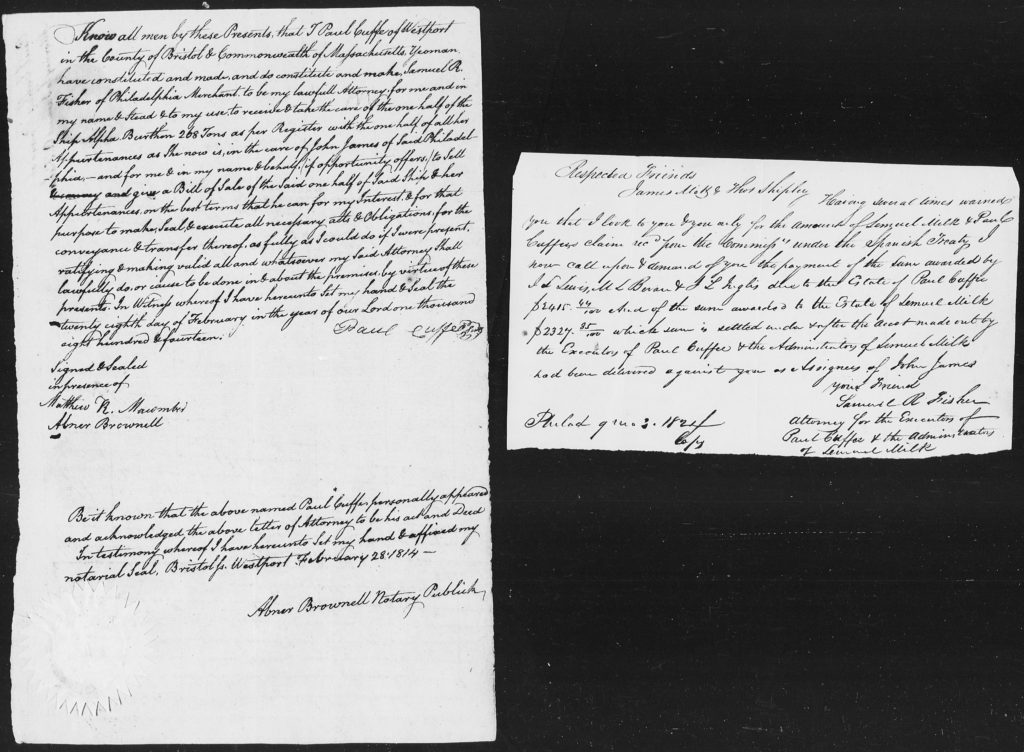 Know all men by these Presents, that I Paul Cuffe of Westport
in the County of Bristol & Commonwealth of Massachusetts, Yeoman
have constituted and made, and do constitute and make, Samuel R.
Fisher of Philadelphia Merchant, to be my lawfull Attorney, for me and in
my name & Stead & to my use, to receive & take the care of the one half of the
Ship Alpha Burthen 268 Tons as per Register with the one half of all her
Appurtenances as She now is, in the care of, John James of Said Philadel-
phia,—and for me & in my name & behalf, (if opportunity offers,) to Sell
and give a Bill of Sale of the said one half of Said Ship & her
Appurtenances, on the best terms that he can for my Interest, & for that
purpose to make, Seal & execute all necessary, acts & Obligations, for the
conveyance & transfer thereof, as fully as I could do if I were present,
ratifying & making valid all and whatsoever my Said Attorney Shall
lawfully do, or cause to be done in & about the premises, by virtue of these
presents. In Witness whereof I have hereunto Set my hand & Seal the
twenty eighth day of February in the year of our Lord one thousand
eight hundred & fourteen.
Paul Cuffe
Signed & Sealed
in presence of
Matthew R. Macomber
Abner Brownell
Be it known that the above named Paul Cuffe, personally appeared
and acknowledged the above letter of Attorney to be his act and Deed
In testimony whereof I have hereunto Set my hand & affixed my
notarial Seal, Bristol ss. Westport February 28. 1814 —
Abner Brownell Notary Publick
Respected Friends
James Milk & Thos Shipley
Having several times warned
you that I look to you & you only for the amount of Lemuel Milk & Paul
Cuffees claim recd from the Commissrs under the Spanish Treaty I
now call upon & demand of you the payment of the sum awarded by
due to the Estate of Paul Cuffee
$2415.44/100 And of the sum awarded to the Estate of Lemuel Milk
$2327.85/100 which sum is settled under & after the Acct made out by
the Executors of Paul Cuffee & the Administrators of Lemuel Milk
had been delivered against you as Assignees of John James
your Friend
Samuel R Fisher
Attorney for the Executors of
Paul Cuffee & the Administrators
of Lemuel Milk
Philad 9 mo 3. 1824
Copy